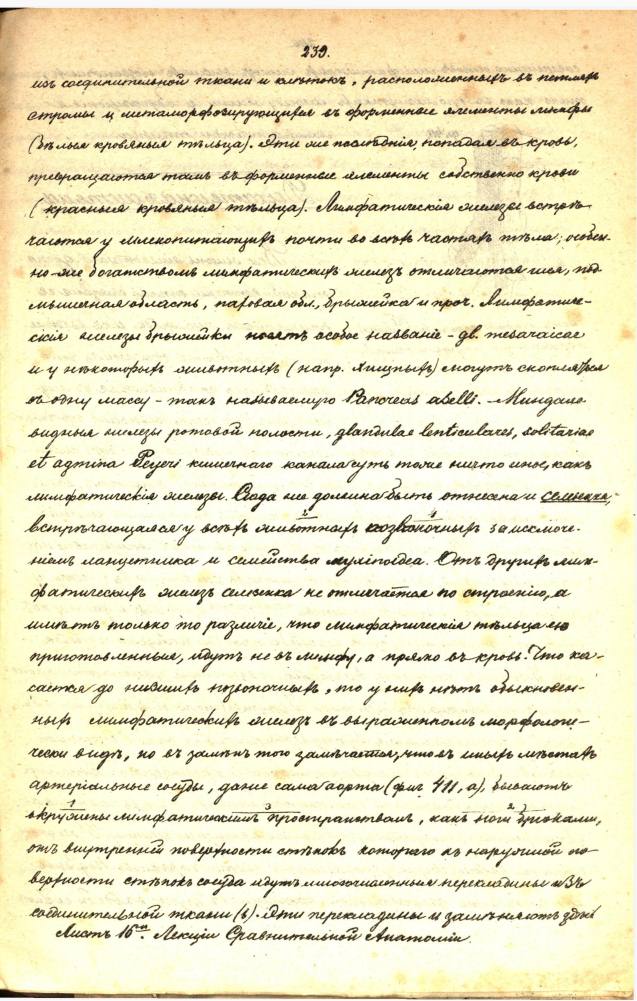 239.
изъ соединительной ткани и клѣтокъ, расположенныхъ въ петляхъ
стромы и метаморфозирующихся въ форменные элементы лимфы
(бѣлыя кровяныя тѣльца). Эти же послѣднія, попадая въ кровь,
превращаются тамъ въ форменные элементы собственно крови
(красныя кровяныя тѣльца). Лимфатическія железы встрѣ-
чаются у млекопитающихъ почти во всѣхъ частяхъ тѣла; особен-
но-же богатствомъ лимфатическихъ железъ отличаются шея, под-
мышечная область, паховая обл., брыжейка и проч. Лимфатиче-
скія железы брыжейки носятъ особое названіе - gl. mesaraicae
и у нѣкоторыхъ животныхъ (напр. хищныхъ) могутъ скопляться
въ одну массу - такъ называемую Pancreas aselli. - Миндале-
видныя железы ротовой полости, glandulae lenticulares, solitariae
et agmina Peyeri кишечнаго канала суть тоже ничто иное, какъ
лимфатическія железы. Сюда же должна быть отнесена и селезенка,
встрѣчающаяся у всѣхъ животныхъ позвоночныхъ за исключе-
ніемъ ланцетника и семейства myxinoidea. Отъ другихъ лим-
фатическихъ железъ селезенка не отличается по строенію, а
имѣетъ только то различіе, что лимфатическія тѣльца ею
приготовленныя, идутъ не въ лимфу, а прямо въ кровь. Что ка-
сается до низшихъ позвоночныхъ, то у нихъ нѣтъ обыкновен-
ныхъ лимфатическихъ железъ въ выраженномъ морфологи-
чески видѣ, но въ замѣнъ того замѣчается, что въ иныхъ мѣстахъ
артеріальные сосуды, даже сама аорта (фиг. 411, a), бываютъ
окружены лимфатическимъ пространствомъ, какъ ноги брюками,
отъ внутренней поверхности стѣнокъ котораго къ наружной по-
верхности стѣнокъ сосуда идутъ многочисленныя перекладины изъ
соединительной ткани (b). Эти перекладины и замѣняютъ здѣсь
Листъ 16й Лекціи Сравнительной Анатоміи.